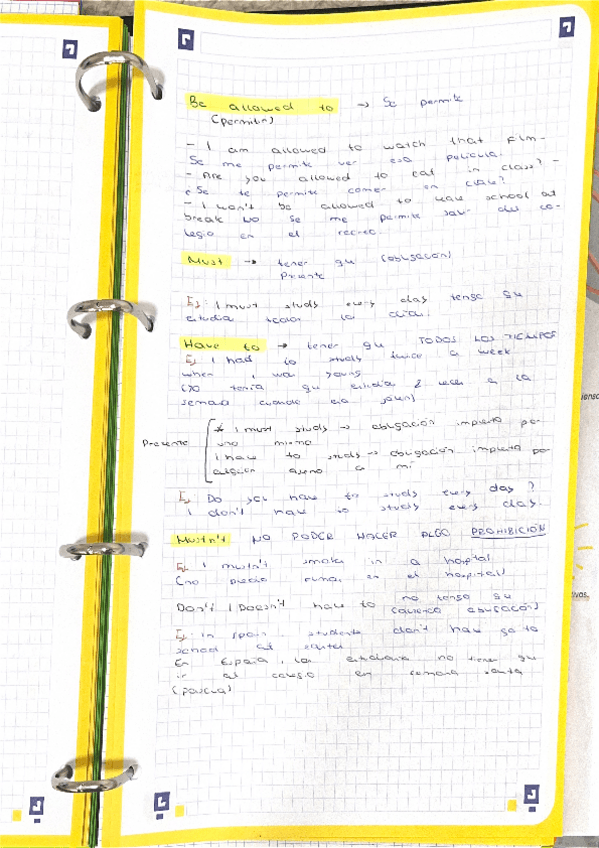 Be allowed to → Se permite
(permitir)
- I am allowed to watch that film -
Se me permite ver esa película.
- Are you allowed to eat in class? -
¿Se te permite comer en clase?
- I won't be allowed to leave school at
break No se me permite salir del co-
legio en el recreo.
Must → tener que (obligación)
Presente
Ej: I must study every day tengo que
estudiar todos los días.
Have to → tener que TODOS LOS TIEMPOS
Ej I had to study twice a week
when I was young
(yo tenía que estudiar 2 veces a la
semana cuando era joven)
Presente
* I must study → obligación impuesta por
uno mismo
I have to study → obligación impuesta por
alguien ajeno a mí
Ej Do you have to study every day?
I don't have to study every day.
Mustn't NO PODER HACER ALGO PROHIBICIÓN
Ej I mustn't smoke in a hospital.
(no puedo fumar en el hospital)
Don't / Doesn't have to no tengo que
(ausencia obligación)
Ej: in Spain, students don't have go to
school at
En España, los estudiantes no tienen que
ir al colegio en semana santa
(pascua)